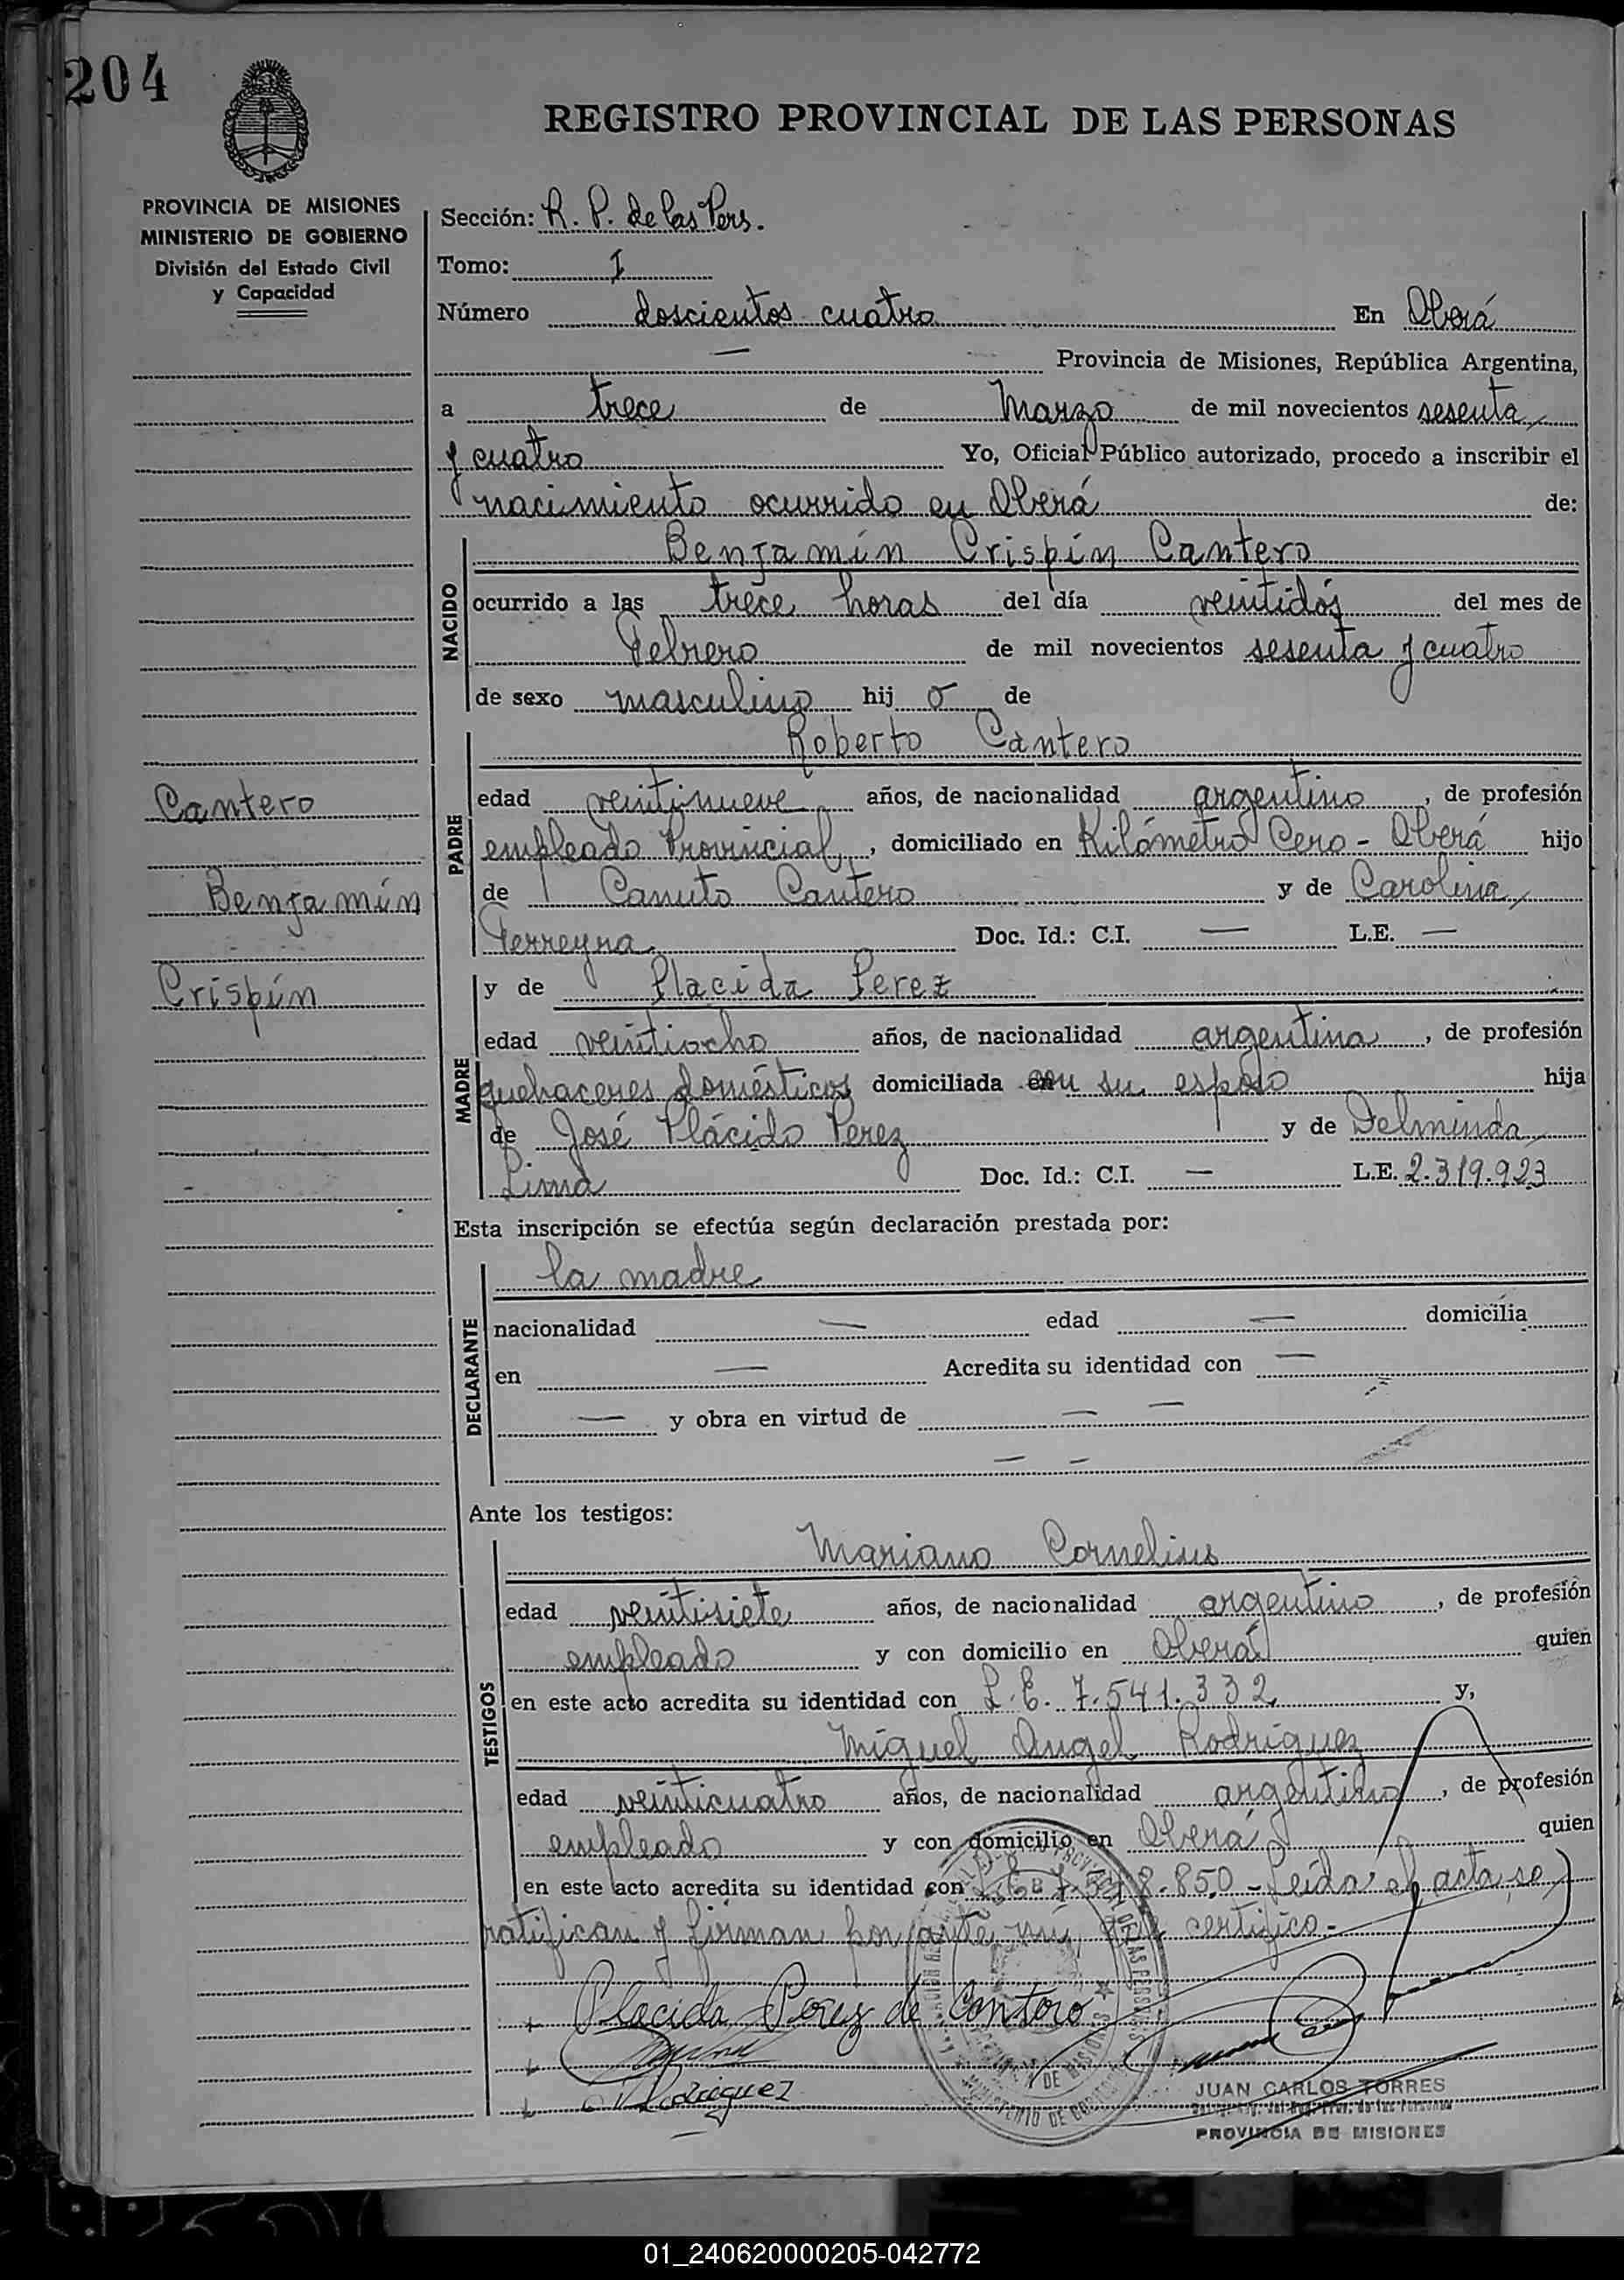 204
REGISTRO PROVINCIAL DE LAS PERSONAS
PROVINCIA DE MISIONES
MINISTERIO DE GOBIERNO
División del Estado Civil
y Capacidad
Sección: R. P. de las Pers.
Tomo: I
Número doscientos cuatro En Oberá
— Provincia de Misiones, República Argentina,
a trece de Marzo de mil novecientos sesenta
y cuatro Yo, Oficial Público autorizado, procedo a inscribir el
nacimiento ocurrido en Oberá de:
NACIDO
Benjamín Crispín Cantero
ocurrido a las trece horas del día veintidós del mes de
Febrero de mil novecientos sesenta y cuatro
de sexo masculino hij o de
PADRE
Roberto Cantero
edad veintinueve años, de nacionalidad argentino, de profesión
empleado Provincial, domiciliado en Kilómetro Cero - Oberá hijo
de Canuto Cantero y de Carolina
Ferreyra Doc. Id.: C.I. — L.E. —
Cantero
Benjamín
Crispín
MADRE
y de Placida Perez
edad veintiocho años, de nacionalidad argentina, de profesión
quehaceres domésticos domiciliada con su esposo hija
de José Plácido Perez y de Delminda
Lima Doc. Id.: C.I. — L.E. 2.319.923
Esta inscripción se efectúa según declaración prestada por:
DECLARANTE
la madre
nacionalidad — edad — domicilia
en — Acredita su identidad con —
— y obra en virtud de — —
— —
Ante los testigos:
TESTIGOS
Mariano Cornelius
edad veintisiete años, de nacionalidad argentino, de profesión
empleado y con domicilio en Oberá quien
en este acto acredita su identidad con L.E. 7.541.332 y,
Miguel Angel Rodriguez
edad veinticuatro años, de nacionalidad argentino, de profesión
empleado y con domicilio en Oberá quien
en este acto acredita su identidad con 8.850 - Leída el acta se
ratifican y firman por ante mí, que certifico.-
Placida Perez de Cantero
Rodriguez
JUAN CARLOS TORRES
PROVINCIA DE MISIONES
MINISTERIO DE GOBIERNO
01_240620000205-042772